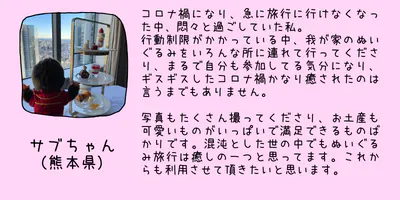 コロナ禍になり、急に旅行に行けなくなっ
た中、悶々と過ごしていた私。
行動制限がかかっている中、我が家のぬい
ぐるみをいろんな所に連れて行ってくださ
り、まるで自分も参加してる気分になり、
ギスギスしたコロナ禍かなり癒されたのは
言うまでもありません。
写真もたくさん撮ってくださり、お土産も
可愛いものがいっぱいで満足できるものば
かりです。混沌とした世の中でもぬいぐる
み旅行は癒しの一つと思ってます。これか
らも利用させて頂きたいと思います。
サブちゃん
(熊本県)